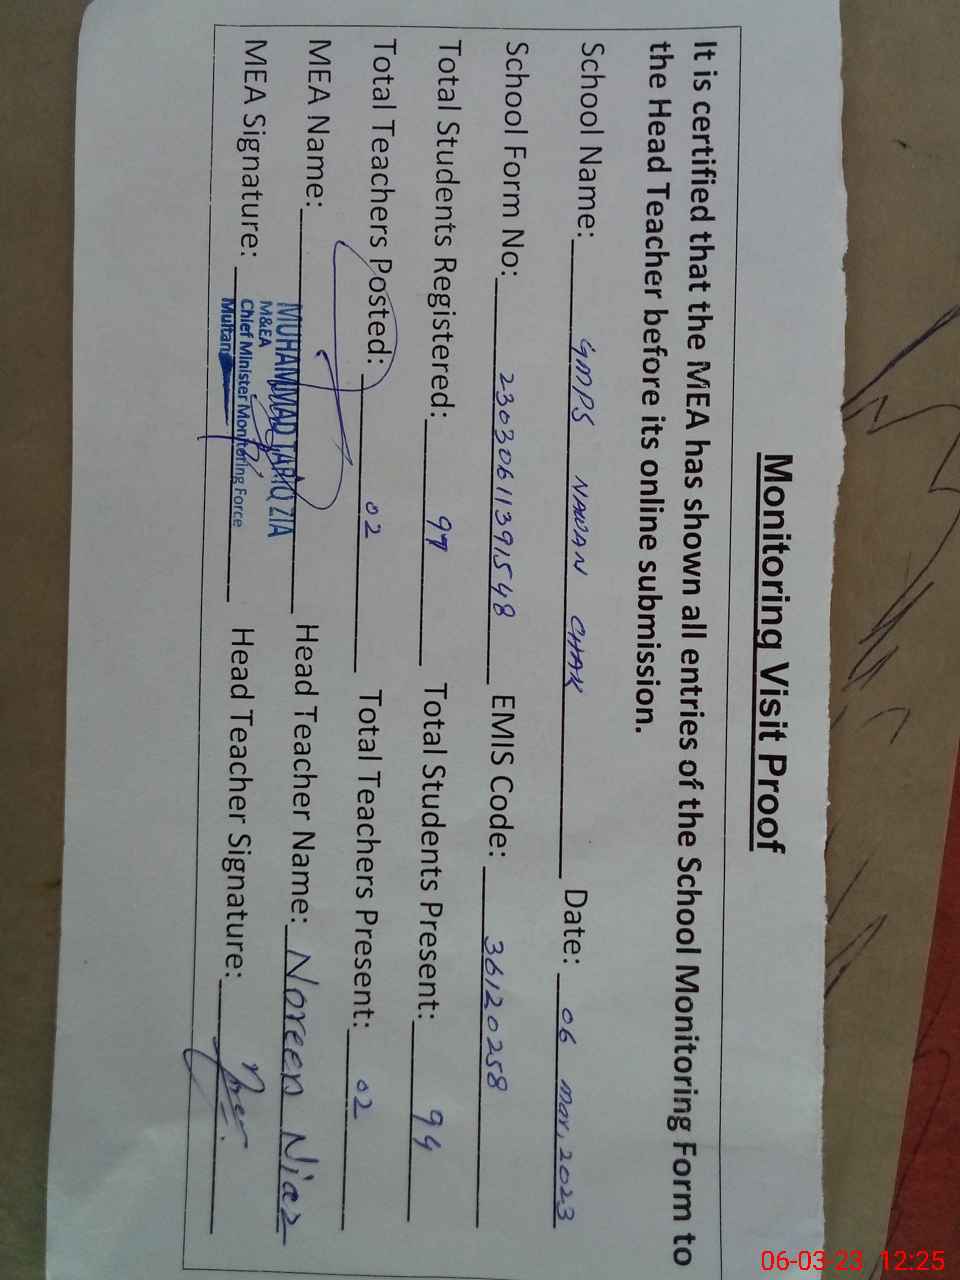 Monitoring Visit Proof
It is certified that the MEA has shown all entries of the School Monitoring Form to
the Head Teacher before its online submission.
School Name: GMPS NAWAN CHAK Date: 06 Mar, 2023
School Form No: 23030611391548 EMIS Code: 36120258
Total Students Registered: 97 Total Students Present: 94
Total Teachers Posted: 02 Total Teachers Present: 02
MEA Name: MUHAMMAD TARIQ ZIA Head Teacher Name: Noreen Niaz
M&EA
MEA Signature: Chief Minister Monitoring Force Head Teacher Signature:
Multan
06-03-23 12:25